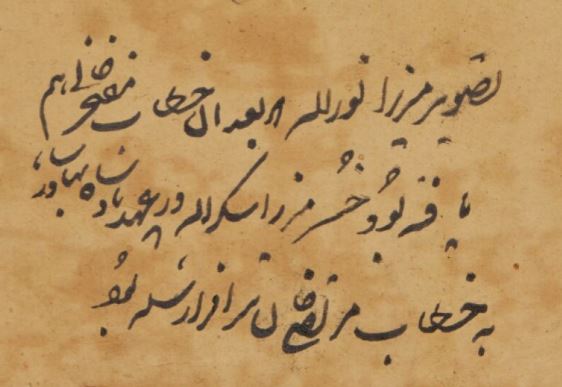 تصویر میرزا نورالله که بعد از آن خطاب مفتخر خانی هم
یافته بود و خسر میرزا شکرالله در عهد بادشاه بهادر
به خطاب مرتضی خان سرافراز شده بود